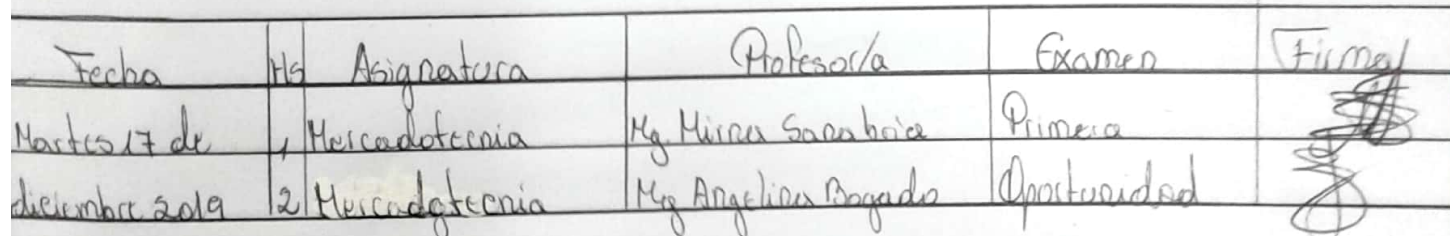 Fecha Hs Asignatura Profesor/a Examen Firma
Martes 17 de 1 Mercadotecnia Mg Mirna Sanabria Primera
diciembre 2019 2 Mercadotecnia Mg Angelina Bogado Oportunidad